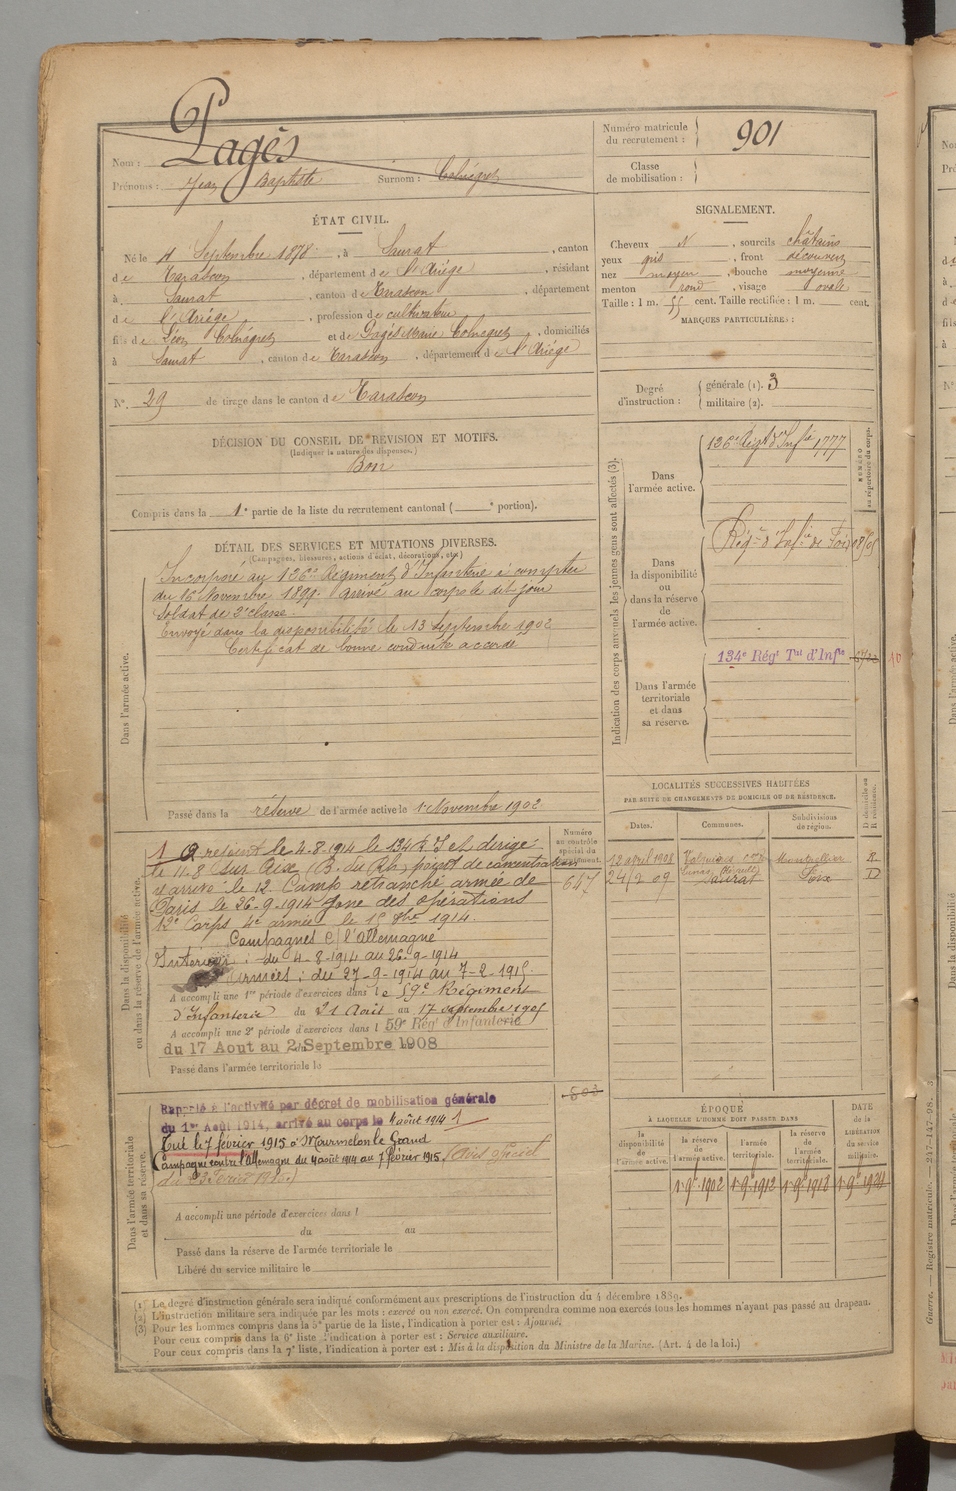 Nom : Pagès
Prénoms : Jean Baptiste Surnom :
Numéro matricule du recrutement : 901
Classe de mobilisation :
ÉTAT CIVIL.
Né le Septembre 1878, à Saurat, canton
de Tarascon, département de l'Ariége, résidant
à Saurat, canton de Tarascon, département
de l'Ariége, profession de cultivateur
fils de Léon et de Pagès Marie, domiciliés
à Saurat, canton de Tarascon, département de l'Ariége
N° 29 de tirage dans le canton de Tarascon
SIGNALEMENT.
Cheveux N, sourcils châtains
yeux gris, front découvert
nez moyen, bouche moyenne
menton rond, visage ovale
Taille : 1 m. 55 cent. Taille rectifiée : 1 m. cent.
MARQUES PARTICULIÈRES :
Degré d'instruction : générale (1). 3
militaire (2).
DÉCISION DU CONSEIL DE REVISION ET MOTIFS.
(Indiquer la nature des dispenses.)
Bon
Compris dans la 1e partie de la liste du recrutement cantonal ( e portion).
DÉTAIL DES SERVICES ET MUTATIONS DIVERSES.
(Campagnes, blessures, actions d'éclat, décorations, etc.)
Dans l'armée active.
Incorporé au 126e Régiment d'Infanterie à compter
du 16 Novembre 1899. Arrivé au corps le dit jour
Soldat de 2e classe.
Envoyé dans la disponibilité le 13 Septembre 1902
Certificat de bonne conduite accordé
Passé dans la réserve de l'armée active le 1er Novembre 1902
Indication des corps auxquels les jeunes gens sont affectés (3).
NUMÉRO au répertoire du corps.
Dans l'armée active.
126e Régt d'Infie 1777
Dans la disponibilité ou dans la réserve de l'armée active.
Régt d'Infie de Foix
Dans l'armée territoriale et dans sa réserve.
134e Régt Tal d'Infie
LOCALITÉS SUCCESSIVES HABITÉES
PAR SUITE DE CHANGEMENTS DE DOMICILE OU DE RÉSIDENCE.
Dates. Communes. Subdivisions de région. D domicile ou R résidence.
12 avril 1908 Lunas (Hérault) Montpellier R
24/2 09 Saurat Foix D
Dans la disponibilité ou dans la réserve de l'armée active.
Numéro au contrôle spécial du recrutement.
647
1 le 4-8-1914 le 134e R.I et dirigé
le 11-8 sur Aix (B. du Rh.) point de concentration
arrivé le 12 Camp retranché armée de
Paris le 26-9-1914 zone des opérations
12e Corps 4e armée le 15 1914.
Campagnes c/ l'Allemagne
Intérieur : du 4-8-1914 au 26-9-1914
Armées : du 27-9-1914 au 7-2-1915.
A accompli une 1re période d'exercices dans le 59e Régiment
d'Infanterie du 21 Août au 17 septembre 1905
A accompli une 2e période d'exercices dans l 59e Régt d'Infanterie
du 17 Aout au 2 Septembre 1908
Passé dans l'armée territoriale le
Dans l'armée territoriale et dans sa réserve.
Rappelé à l'activité par décret de mobilisation générale
du 1er Août 1914, arrivé au corps le 4 août 1914 1
Tué le 7 février 1915 à Mourmelon le Grand
Campagne contre l'Allemagne du 4 août 1914 au 7 février 1915. (Avis officiel
du 23 Février 1915.)
A accompli une période d'exercices dans l
du au
Passé dans la réserve de l'armée territoriale le
Libéré du service militaire le
ÉPOQUE
À LAQUELLE L'HOMME DOIT PASSER DANS
la disponibilité de l'armée active. la réserve de l'armée active. l'armée territoriale. la réserve de l'armée territoriale.
DATE de la LIBÉRATION du service militaire.
1er 9bre 1902 1er 9bre 1912 1er 9bre 1918 1er 9bre 1924
(1) Le degré d'instruction générale sera indiqué conformément aux prescriptions de l'instruction du 4 décembre 1889.
(2) L'instruction militaire sera indiquée par les mots : exercé ou non exercé. On comprendra comme non exercés tous les hommes n'ayant pas passé au drapeau.
(3) Pour les hommes compris dans la 5e partie de la liste, l'indication à porter est : Ajourné.
Pour ceux compris dans la 6e liste l'indication à porter est : Service auxiliaire.
Pour ceux compris dans la 7e liste, l'indication à porter est : Mis à la disposition du Ministre de la Marine. (Art. 4 de la loi.)
Guerre. — Registre matricule. — 247-147-98.